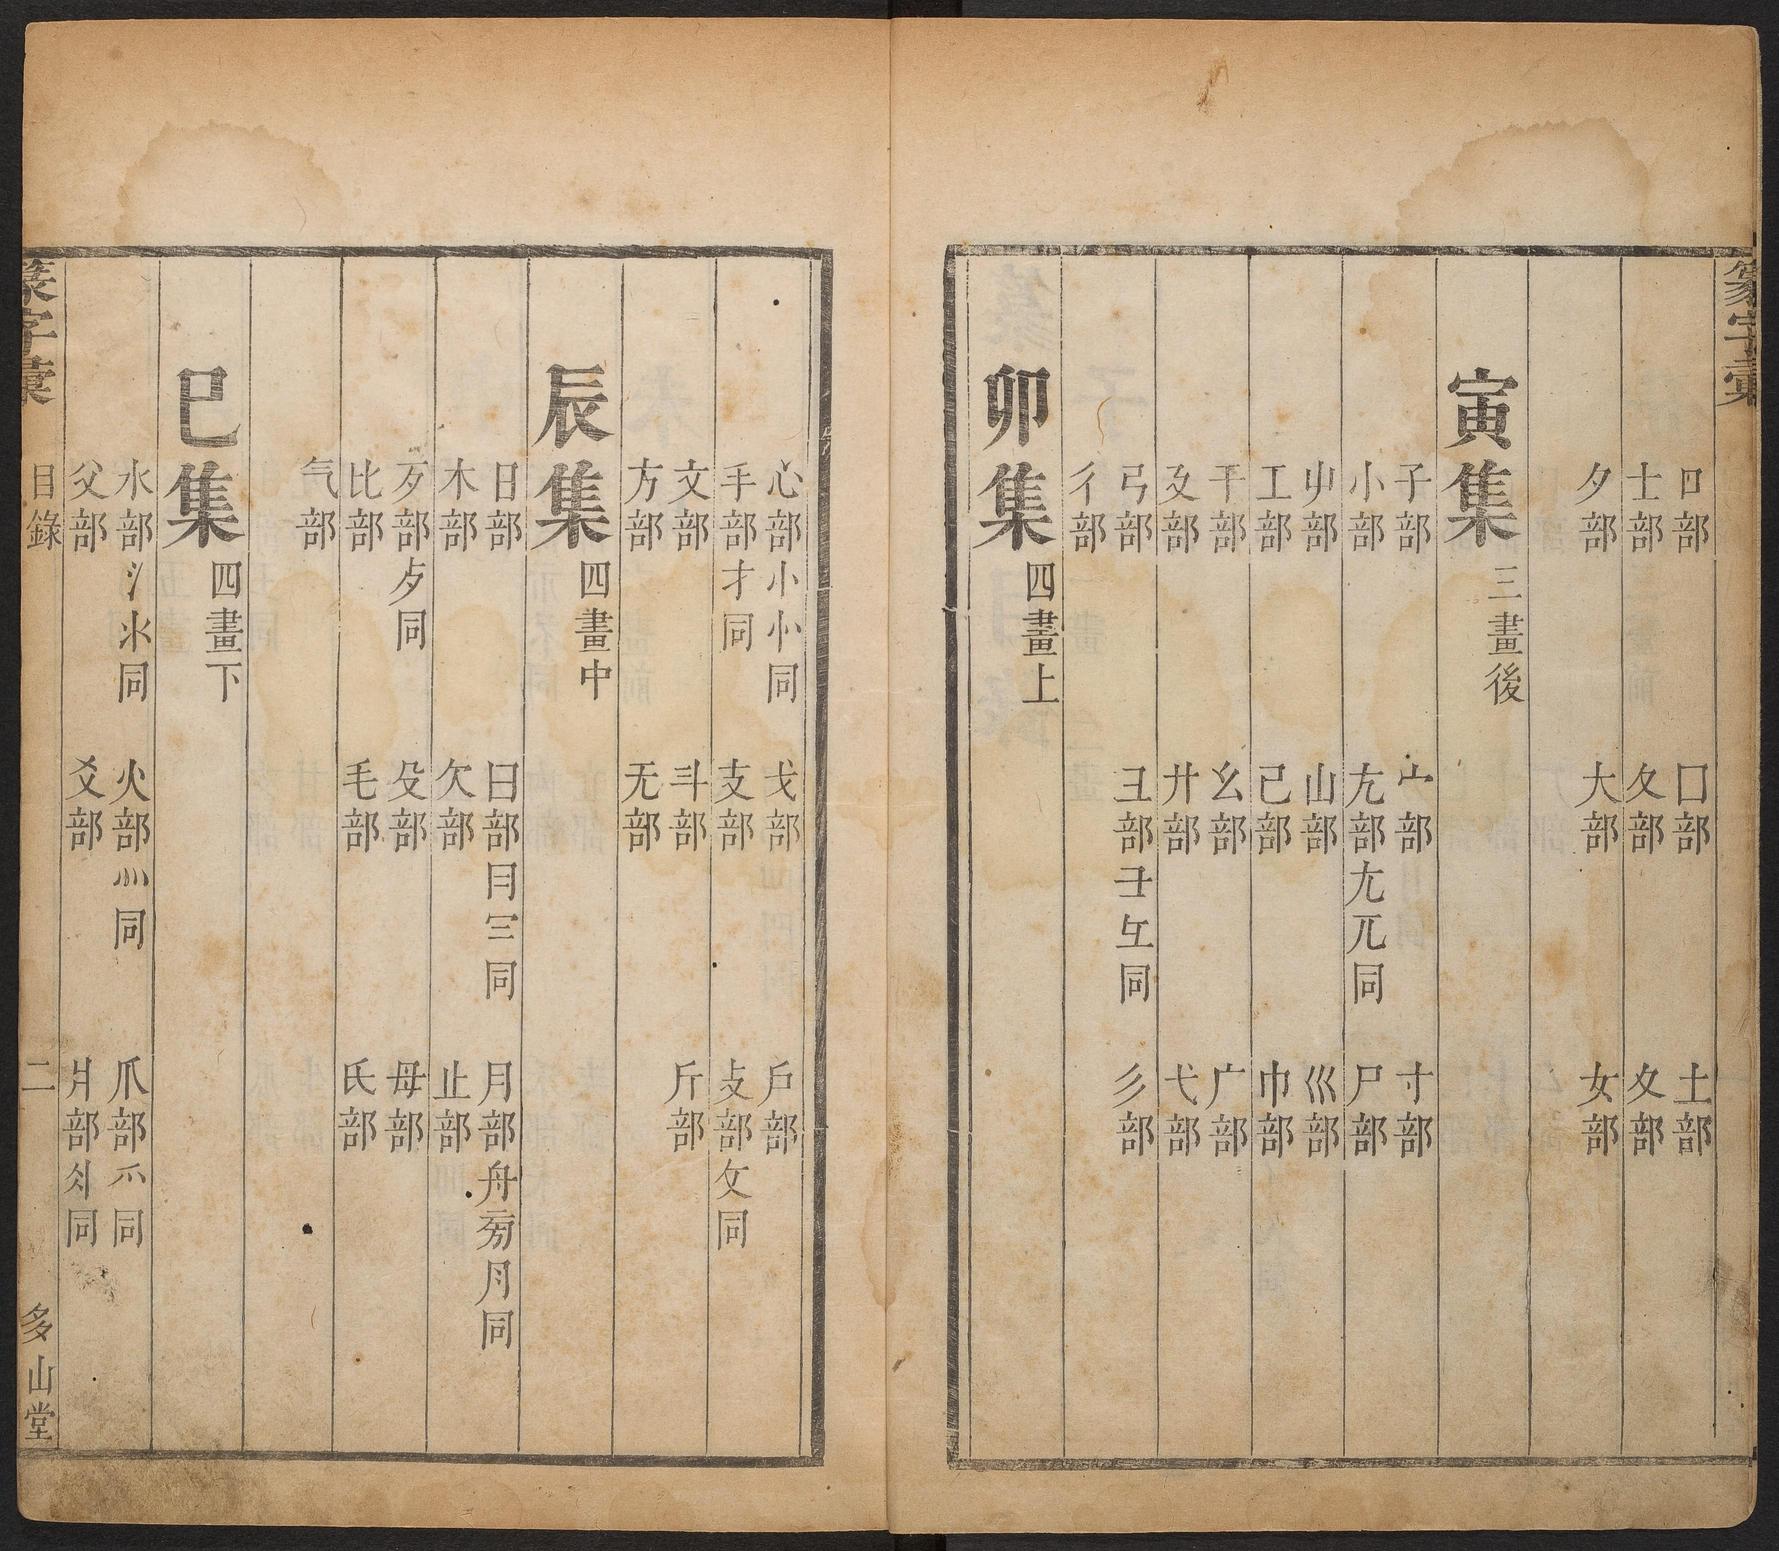 篆字彙
口部 囗部 土部
士部 夂部 夊部
夕部 大部 女部
寅集 三畫後
子部 宀部 寸部
小部 尢部 尣兀同 尸部
屮部 山部 巛部
工部 己部 巾部
干部 幺部 广部
廴部 廾部 弋部
弓部 彐部 彑同 彡部
彳部
卯集 四畫上
心部 忄㣺同 戈部 戶部
手部 扌同 支部 攴部 攵同
文部 斗部 斤部
方部 无部
辰集 四畫中
日部 曰部 月部
木部 欠部 止部
歹部 歺同 殳部 母部
比部 毛部 氏部
气部
巳集 四畫下
水部 氵氺同 火部 灬同 爪部 爫同
父部 爻部 爿部 同
篆字彙 目錄 二 多山堂